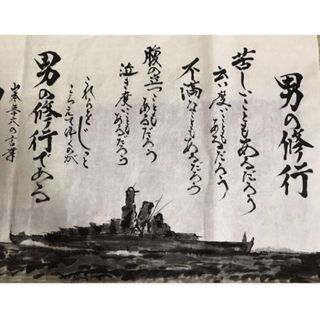 男の修行
苦しいこともあるだろう
云い度いこともあるだろう
不満なこともあるだろう
腹の立つこともあるだろう
泣き度いこともあるだろう
これらをじっと
こらえてゆくのが
男の修行である
山本五十六の言葉